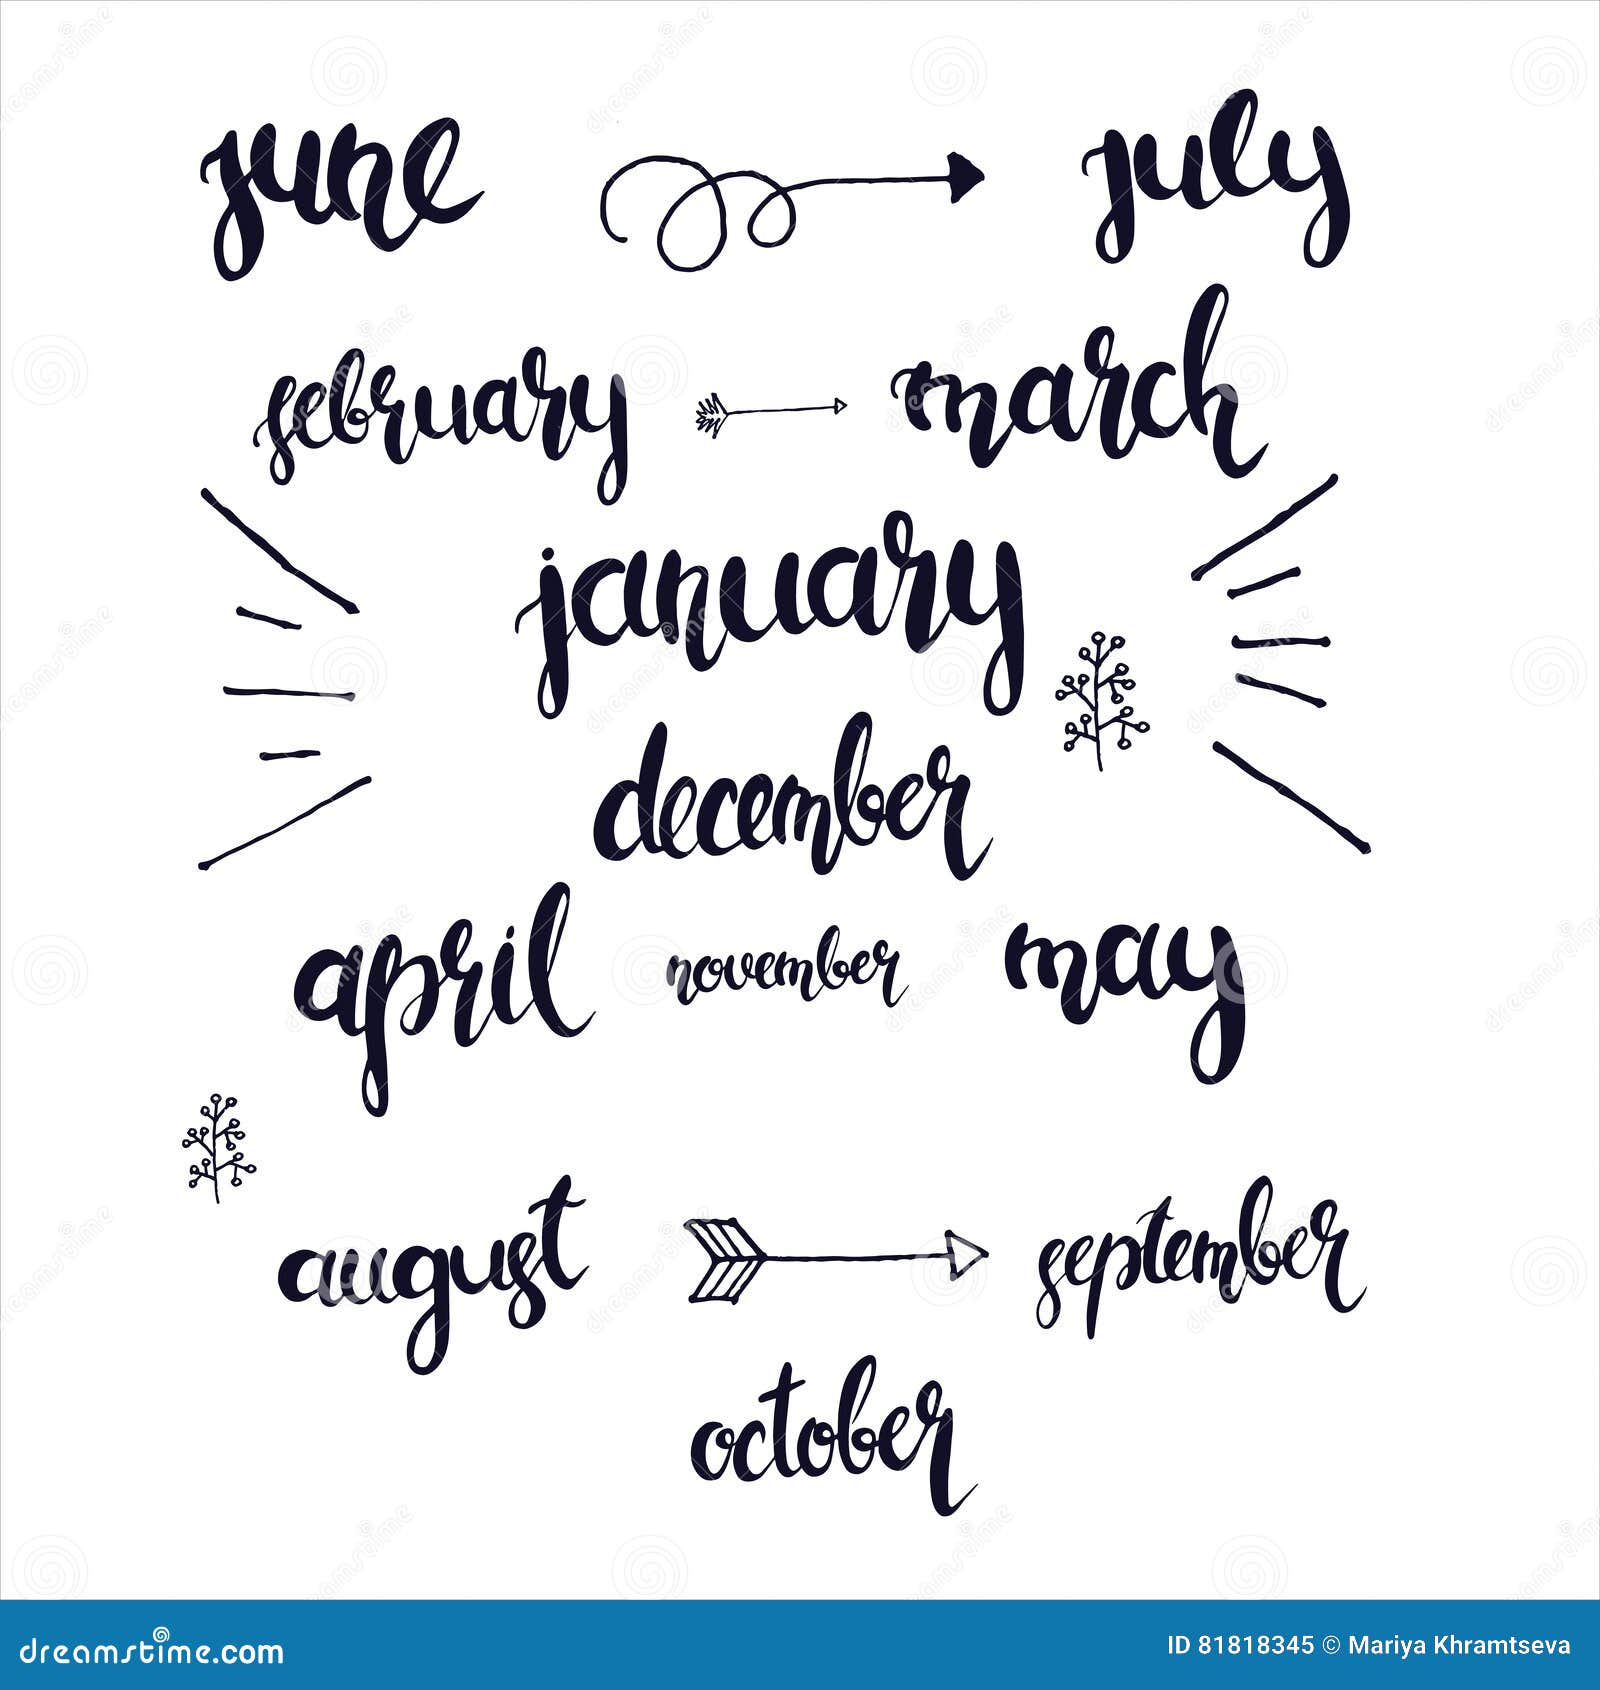 june july
february march
january
december
april november may
august september
october
dreamstime.com ID 81818345 © Mariya Khramtseva